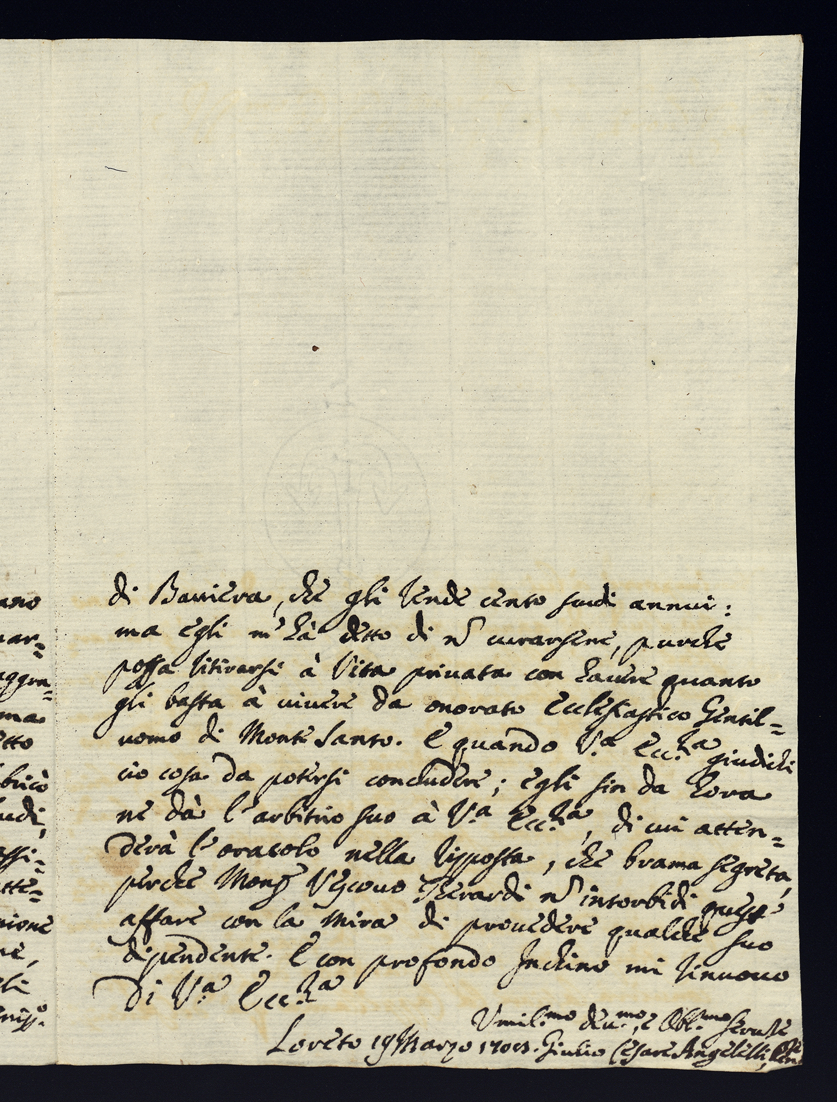 di Baviera, che gli rende cento scudi annui:
ma egli m'hà detto di nõ curarsene, purche
possa ritirarsi à Vita privata con havere quanto
gli basta à vivere da onorato Ecclesiastico Gentil=
uomo di Monte Santo. E quando V.ª Ecc.ª giudichi
cio cosa da potersi concludere; egli sin da hora
ne dà l'arbitrio suo à V.ª Ecc.ª, di cui atten=
derà l'oracolo nella risposta, che brama segreta,
perche Mons.r Vescovo Gherardi nõ intorbidi questo
affare con la mira di provedere qualche suo
dipendente. E con profondo Inchino mi rinuovo
Di V.ª Ecc.ª
Umil.mo dev.mo, e Obl.mo serv.re
Loreto 19 Marzo Giulio Cesare Angelelli
ano
nar=
aggra=
ma
etto
bricò
udi,
issi=
atte=
nione
ne,
gli